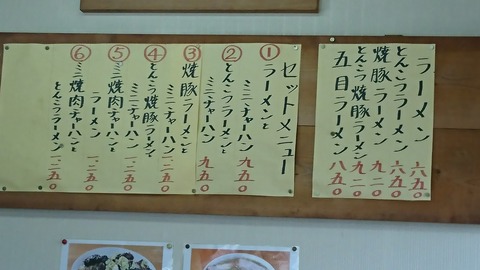 ラーメン 六五〇
とんこつラーメン 六五〇
焼豚ラーメン 九二〇
とんこつ焼豚ラーメン 九二〇
五目ラーメン 八五〇
セットメニュー
① ラーメンと
ミニチャーハン 九五〇
② とんこつラーメンと
ミニチャーハン 九五〇
③ 焼豚ラーメンと
ミニチャーハン 一二五〇
④ とんこつ焼豚ラーメンと
ミニチャーハン 一二五〇
⑤ ミニ焼肉チャーハンと
ラーメン 一二五〇
⑥ ミニ焼肉チャーハンと
とんこつラーメン 一二五〇